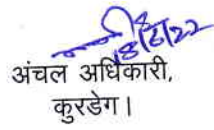 18/6/22
अंचल अधिकारी,
कुरडेग।